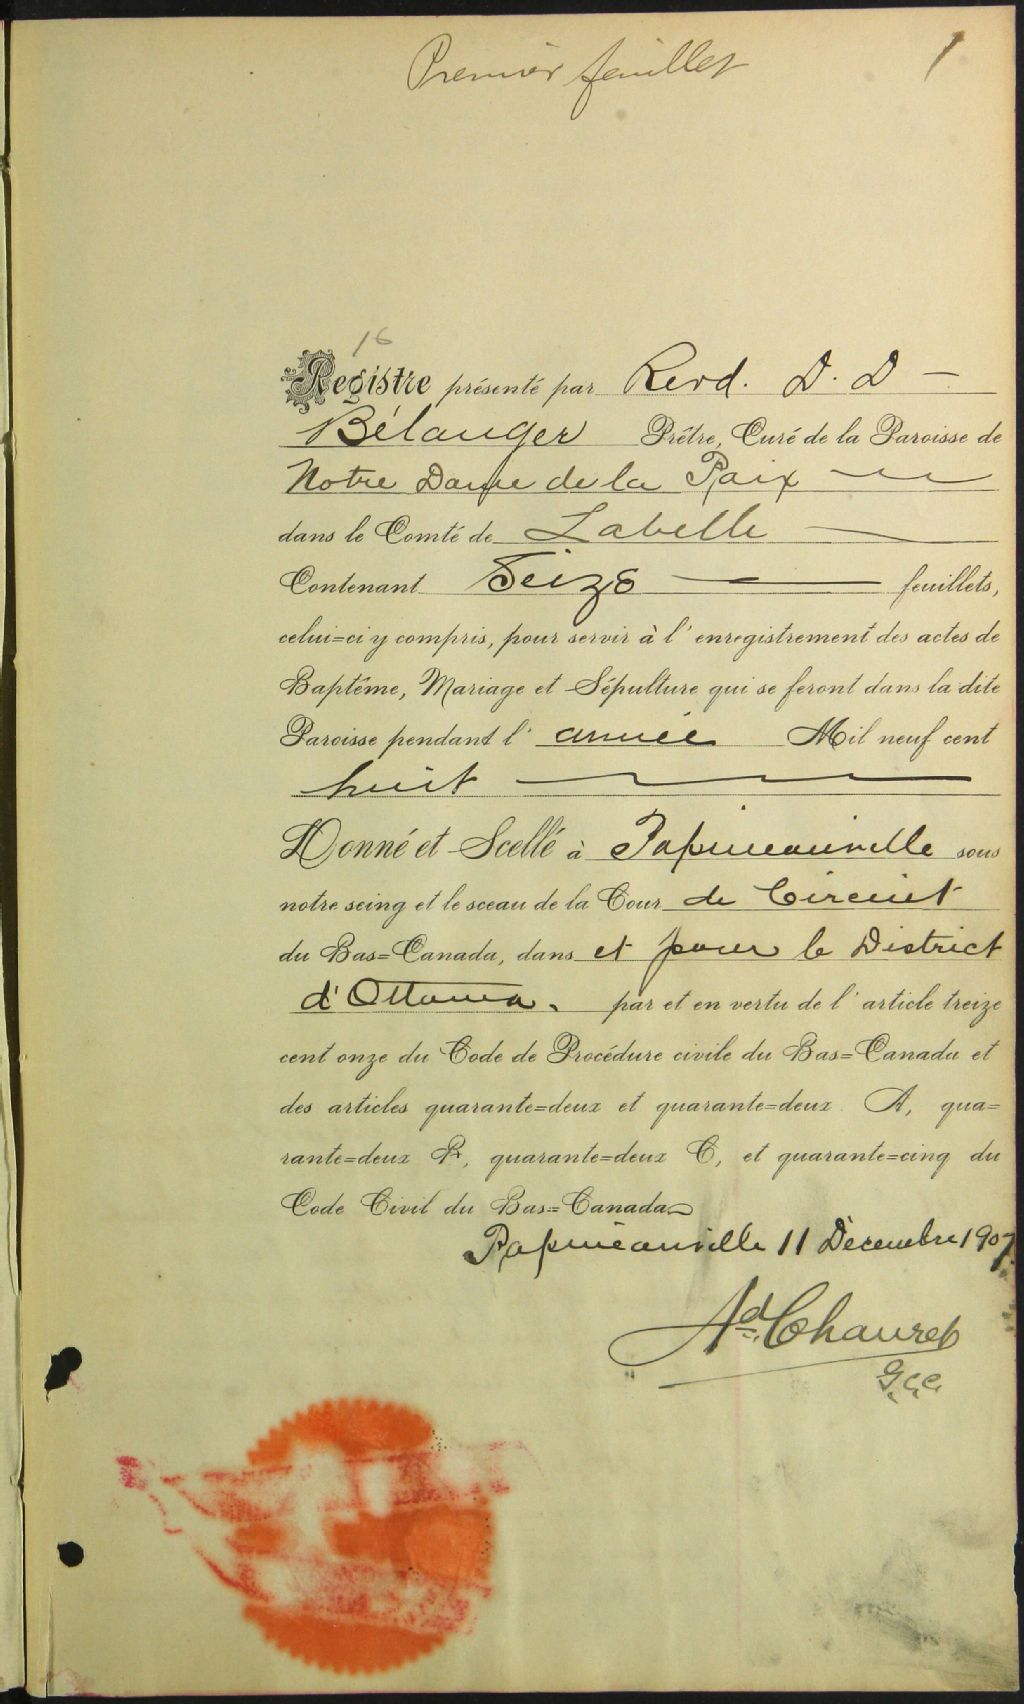 Premier feuillet
1
16
Registre présenté par Revd. D. D -
Bélanger Prêtre, Curé de la Paroisse de
Notre Dame de la Paix
dans le Comté de Labelle
Contenant Seize feuillets,
celui=ci y compris, pour servir à l'enregistrement des actes de
Baptême, Mariage et Sépulture qui se feront dans la dite
Paroisse pendant l'année Mil neuf cent
huit
Donné et Scellé à Papineauville sous
notre seing et le sceau de la Cour de Circuit
du Bas=Canada, dans et pour le District
d'Ottawa. par et en vertu de l'article treize
cent onze du Code de Procédure civile du Bas=Canada et
des articles quarante=deux et quarante=deux A, qua=
rante=deux B, quarante=deux C, et quarante=cinq du
Code Civil du Bas=Canada
Papineauville 11 Décembre 1907
Ad. Chauret
G.C.C.